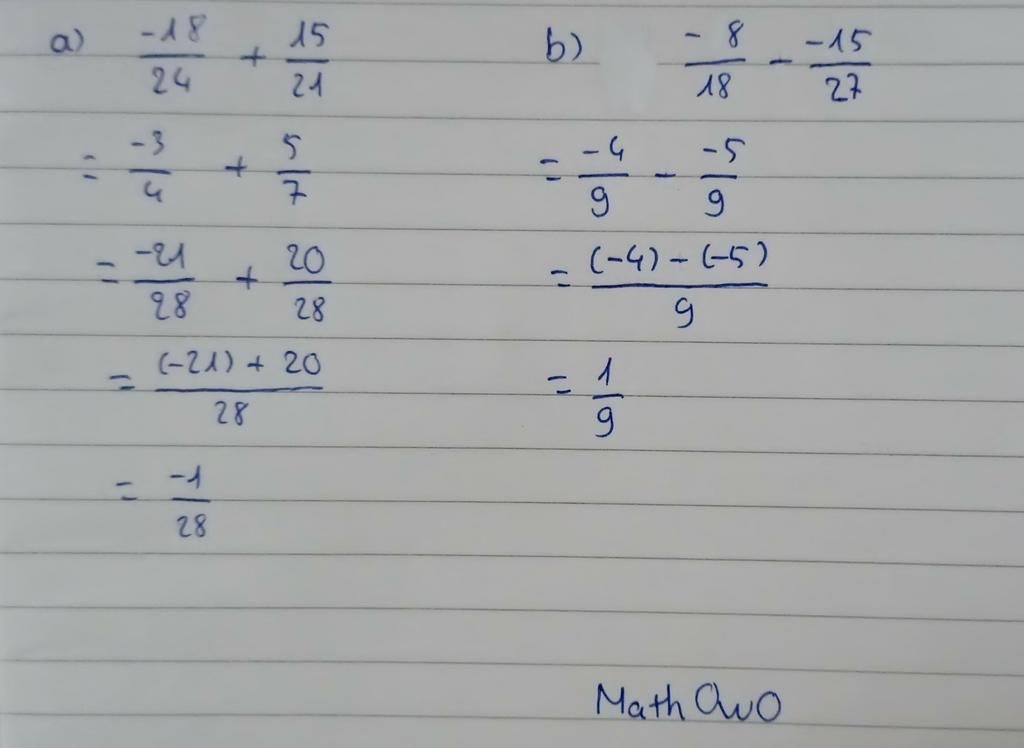 a) -18/24 + 15/21
= -3/4 + 5/7
= -21/28 + 20/28
= (-21) + 20/28
= -1/28
b) -8/18 - -15/27
= -4/9 - -5/9
= (-4) - (-5)/9
= 1/9
Math OwO